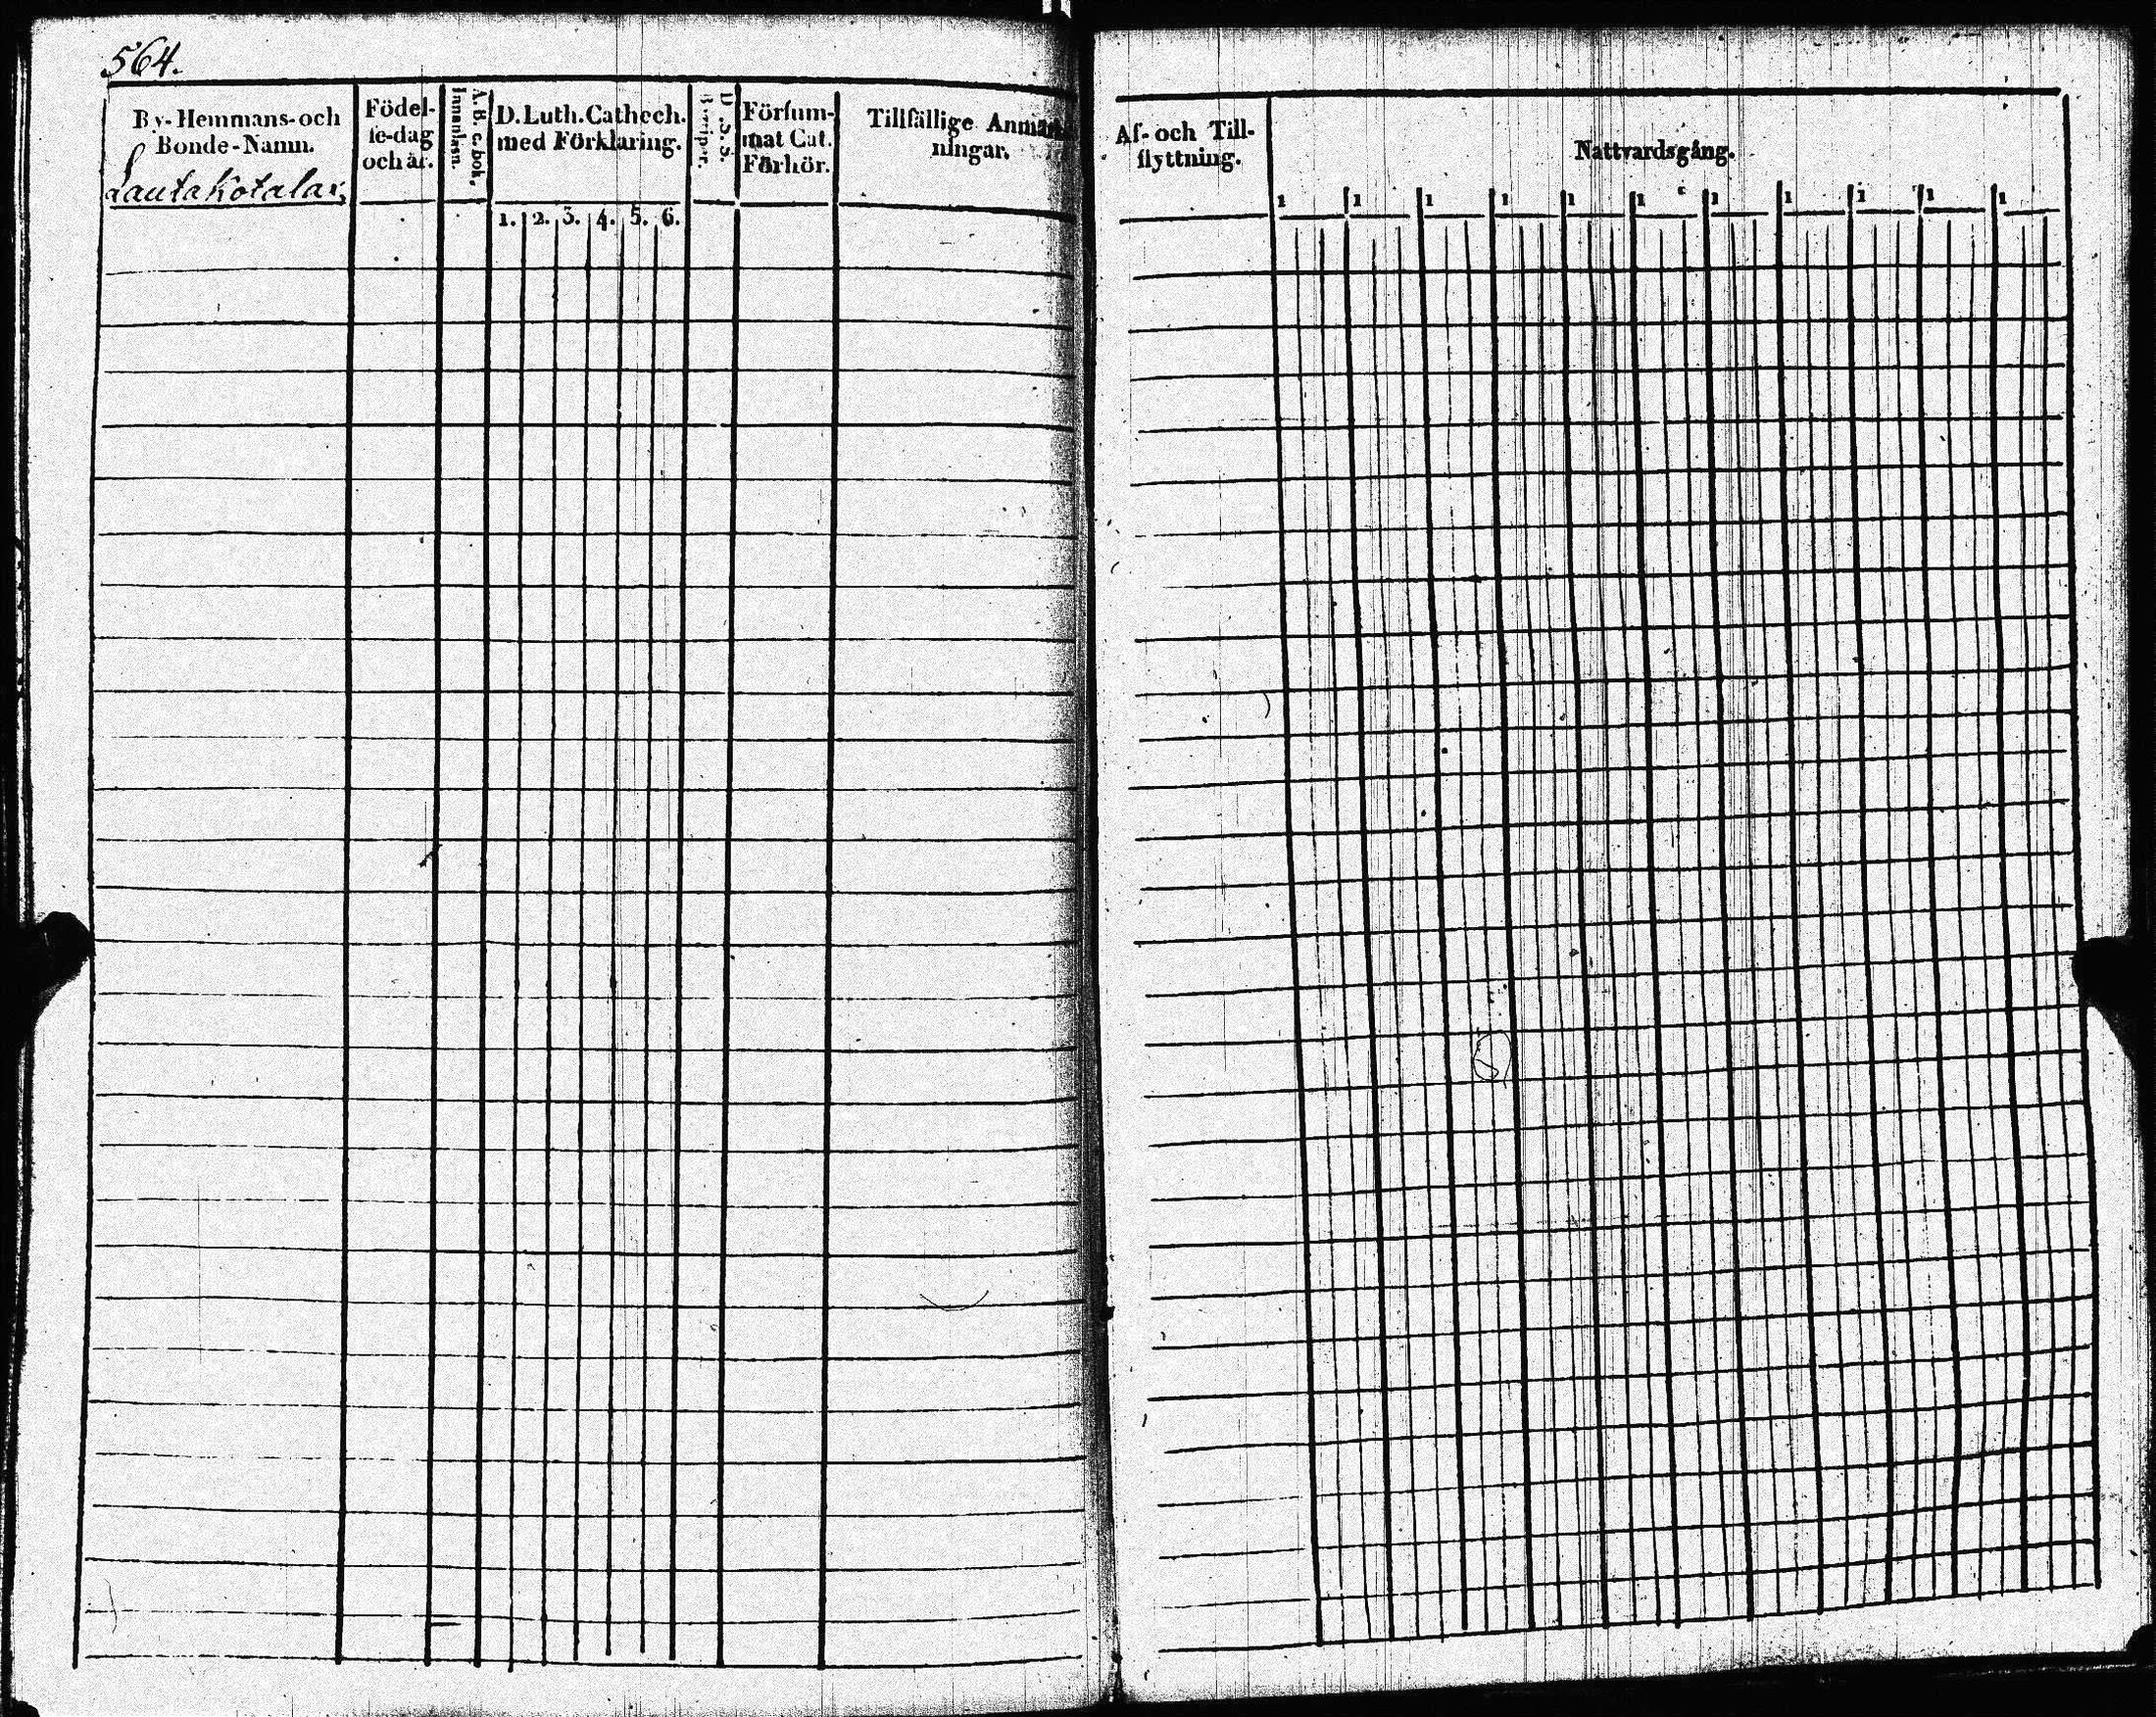 564.
By-Hemmans-och
Bonde-Namn.
Lautakotalax,
Födel-
se-dag
och år.
A.B.c.bok,
Innanläsn.
D. Luth. Cathech.
med Förklaring.
1. 2. 3. 4. 5. 6.
D. S. S.
Försum-
mat Cat.
Förhör.
Tillfällige Anmärk
ningar.
Af- och Till-
flyttning.
Nattvardsgång.
1 1 1 1 1 1 1 1 1 1 1